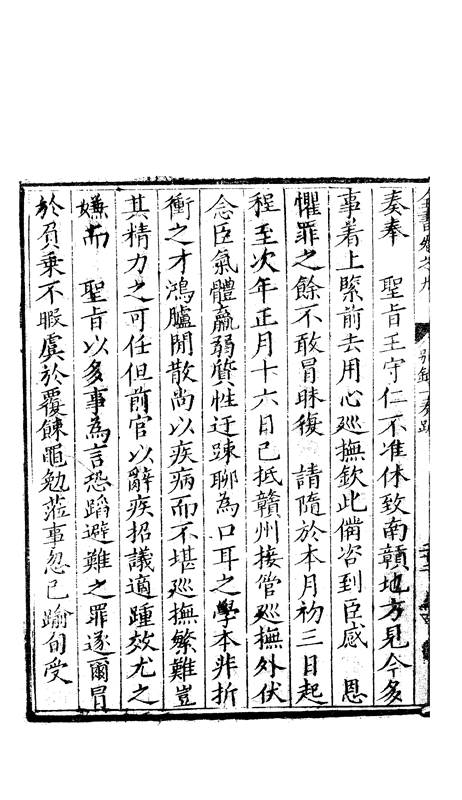 全書卷之九 別錄 奏疏
奏奉 聖旨王守仁不准休致南贛地方見今多
事着上緊前去用心巡撫欽此備咨到臣感 恩
懼罪之餘不敢冒昧復 請隨於本月初三日起
程至次年正月十六日已抵贛州接管巡撫外伏
念臣氣體羸弱質性迂踈聊為口耳之學本非折
衝之才鴻臚閒散尚以疾病而不堪巡撫繁難豈
其精力之可任但前官以辭疾招議適踵效尤之
嫌而 聖旨以多事為言恐蹈避難之罪遂爾冒
於負乗不暇虞於覆餗黽勉蒞事忽已踰旬受